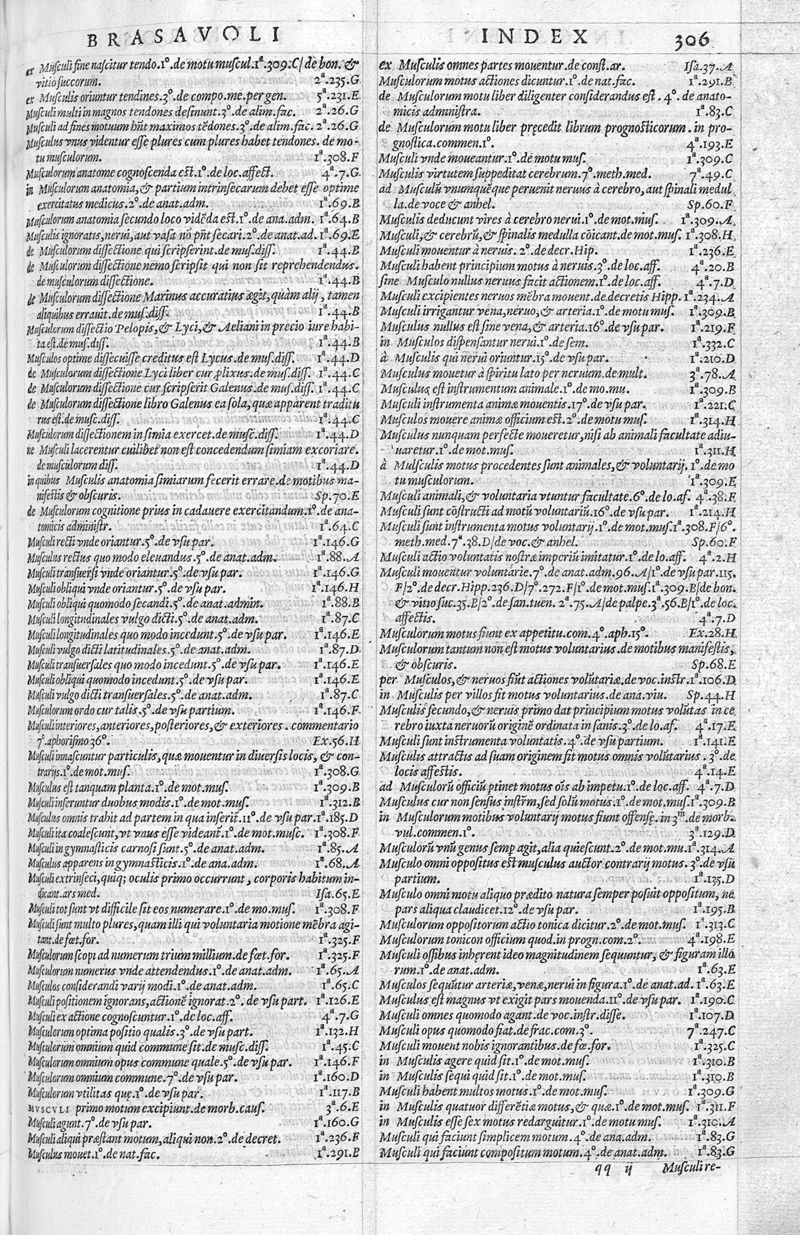 BRASAVOLI
ex Musculi fine nascitur tendo.1º.de motu muscul.1ª.309.C/ de bon. &
vitio succorum. 2ª.235.G
ex Musculis oriuntur tendines.3º.de compo.me.per gen. 5ª.231.E
Musculi multi in magnos tendones desinunt.3º.de alim.fac. 2ª.26.G
Musculi ad fines motuum hñt maximos tẽdones.3º.de alim.fac. 2ª.26.G
Musculus vnus videntur esse plures cum plures habet tendones. de mo-
tu musculorum. 1ª.308.F
Musculorum anatome cognoscenda est.1º.de loc.affect. 4ª.7.G
in Musculorum anatomia,& partium intrinsecarum debet esse optime
exercitatus medicus.2º.de anat.adm. 1ª.69.B
Musculorum anatomia secundo loco vidẽda est.1º.de ana.adm. 1ª.64.B
Musculis ignoratis,nerui,aut vasa nõ pñt secari.2º.de anat.ad. 1ª.69.E
de Musculorum dissectione qui scripserint.de mus.diss. 1ª.44.B
de Musculorum dissectione nemo scripsit qui non sit reprehendendus.
de musculorum dissectione. 1ª.44.B
de Musculorum dissectione Marinus accuratius ægit,quàm alij, tamen
aliquibus errauit.de mus.diss. 1ª.44.B
Musculorum dissectio Pelopis,& Lyci,& Aeliani in precio iure habi-
ta est.de mus.diss. 1ª.44.B
Musculos optime dissecuisse creditus est Lycus.de mus.diss. 1ª.44.D
de Musculorum dissectione Lyci liber cur plixus.de mus.diss. 1ª.44.C
de Musculorum dissectione cur scripserit Galenus.de mus.diss. 1ª.44.C
de Musculorum dissectione libro Galenus ea sola,quæ apparent traditu
rus est.de musc.diss. 1ª.44.C
Musculorum dissectionem in simia exercet.de musc.diss. 1ª.44.D
ne Musculi lacerentur cuilibet non est concedendum simiam excoriare.
de musculorum diss. 1ª.44.D
in quibus Musculis anatomia simiarum fecerit errare.de motibus ma-
nifestis & obscuris. Sp.70.E
de Musculorum cognitione prius in cadauere exercitandum.1º.de ana-
tomicis administr. 1ª.64.C
Musculi recti vnde oriantur.5º.de vsu par. 1ª.146.G
Musculus rectus quo modo eleuandus.5º.de anat.adm. 1ª.88.A
Musculi transuersi vnde oriantur.5º.de vsu par. 1ª.146.G
Musculi obliqui vnde oriantur.5º.de vsu par. 1ª.146.H
Musculi obliqui quomodo secandi.5º.de anat.admin. 1ª.88.B
Musculi longitudinales vulgo dicti.5º.de anat.adm. 1ª.87.C
Musculi longitudinales quo modo incedunt.5º.de vsu par. 1ª.146.E
Musculi vulgo dicti latitudinales.5º.de anat.adm. 1ª.87.D
Musculi transuersales quo modo incedunt.5º.de vsu par. 1ª.146.E
Musculi obliqui quomodo incedunt.5º.de vsu par. 1ª.146.E
Musculi vulgo dicti transuersales.5º.de anat.adm. 1ª.87.C
Musculorum ordo cur talis.5º.de vsu partium. 1ª.146.F
Musculi interiores,anteriores,posteriores,& exteriores. commentario
7º.aphorismo 36º. Ex.56.H
Musculi innascuntur particulis,quæ mouentur in diuersis locis, & con-
trarijs.1º.de mot.mus. 1ª.308.G
Musculus est tanquam planta.1º.de mot.mus. 1ª.309.B
Musculi inseruntur duobus modis.1º.de mot.mus. 1ª.312.B
Musculus omnis trahit ad partem in qua inserit.11º.de vsu par.1ª.185.D
Musculi ita coalescunt,vt vnus esse videant.1º.de mot.musc. 1ª.308.F
Musculi in gymnasticis carnosi sunt.5º.de anat.adm. 1ª.85.A
Musculus apparens in gymnasticis.1º.de ana.adm. 1ª.68.A
Musculi extrinseci,quiq; oculis primo occurrunt, corporis habitum in-
dicant.ars med. Isa.65.E
Musculi tot sunt vt difficile sit eos numerare.1º.de mo.mus. 1ª.308.F
Musculi sunt multo plures,quam illi qui voluntaria motione mẽbra agi-
tant.de fœt.for. 1ª.325.F
Musculorum scopi ad numerum trium millium.de fœt.for. 1ª.325.F
Musculorum numerus vnde attendendus.1º.de anat.adm. 1ª.65.A
Musculos considerandi varij modi.1º.de anat.adm. 1ª.65.C
Musculi positionem ignorans,actionẽ ignorat.2º. de vsu part. 1ª.126.E
Musculi ex actione cognoscuntur.1º.de loc.aff. 4ª.7.G
Musculorum optima positio qualis.3º.de vsu part. 1ª.132.H
Musculorum omnium quid commune sit.de musc.diss. 1ª.45.C
Musculorum omnium opus commune quale.5º.de vsu par. 1ª.146.F
Musculorum omnium commune.7º.de vsu par. 1ª.160.D
Musculorum vtilitas quę.1º.de vsu par. 1ª.117.B
MVSCVLI primo motum excipiunt.de morb.caus. 3ª.6.E
Musculi agunt.7º.de vsu par. 1ª.160.G
Musculi aliqui præstant motum,aliqui non.2º.de decret. 1ª.236.F
Musculus mouet.1º.de nat.fac. 1ª.291.B
INDEX 306
ex Musculis omnes partes mouentur.de const.ar. Isa.37.A
Musculorum motus actiones dicuntur.1º.de nat.fac. 1ª.291.B
de Musculorum motu liber diligenter considerandus est. 4º.de anato-
micis administra. 1ª.83.C
de Musculorum motu liber præcedit librum prognosticorum. in pro-
gnostica.commen.1º. 4ª.193.E
Musculi vnde moueantur.1º.de motu mus. 1ª.309.C
Musculis virtutem suppeditat cerebrum.7º.meth.med. 7ª.49.C
ad Musculũ vnumquẽque peruenit neruus à cerebro,aut spinali medul
la.de voce & anhel. Sp.60.F
Musculis deducunt vires à cerebro nerui.1º.de mot.mus. 1ª.309.A
Musculi,& cerebrũ,& spinalis medulla cõicant.de mot.mus. 1ª.308.H
Musculi mouentur à neruis. 2º.de decr.Hip. 1ª.236.E
Musculi habent principium motus à neruis.3º.de loc.aff. 4ª.20.B
sine Musculo nullus neruus facit actionem.1º.de loc.aff. 4ª.7.D
Musculi excipientes neruos mẽbra mouent.de decretis Hipp. 1ª.234.A
Musculi irrigantur vena,neruo,& arteria.1º.de motu mus. 1ª.309.B
Musculus nullus est sine vena,& arteria.16º.de vsu par. 1ª.219.F
in Musculos dispensantur nerui.1º.de sem. 1ª.332.C
à Musculis qui nerui oriuntur.15º.de vsu par. 1ª.210.D
Musculus mouetur à spiritu lato per neruum.de mult. 3ª.78.A
Musculus est instrumentum animale.1º.de mo.mu. 1ª.309.B
Musculi instrumenta animæ mouentis.17º.de vsu par. 1ª.221.C
Musculos mouere animæ officium est.2º.de motu mus. 1ª.314.H
Musculus nunquam perfecte moueretur,nisi ab animali facultate adiu-
uaretur.1º.de mot.mus. 1ª.311.H
à Musculis motus procedentes sunt animales,& voluntarij. 1º.de mo
tu musculorum. 1ª.309.E
Musculi animali,& voluntaria vtuntur facultate.6º.de lo.af. 4ª.38.F
Musculi sunt cõstructi ad motũ voluntariũ.16º.de vsu par. 1ª.214.H
Musculi sunt instrumenta motus voluntarij.1º.de mot.mus.1ª.308.F/6º.
meth.med.7ª.38.D/de voc.& anhel. Sp.60.F
Musculi actio voluntatis nostræ imperiũ imitatur.1º.de lo.aff. 4ª.2.H
Musculi mouentur voluntarie.7º.de anat.adm.96.A/1º.de vsu par.115.
F/2º.de decr.Hipp.236.D/7º.272.F/1º.de mot.mus.1ª.309.B/de bon.
& vitio suc.35.E/2º.de san.tuen. 2ª.75.A/de palpe.3ª.56.B/1º.de loc.
affectis. 4ª.7.D
Musculorum motus fiunt ex appetitu.com.4º.aph.15º. Ex.28.H
Musculorum tantum non est motus voluntarius.de motibus manifestis,
& obscuris. Sp.68.E
per Musculos,& neruos fiũt actiones volũtariæ.de voc.instr.1ª.106.D
in Musculis per villos fit motus voluntarius.de ana.viu. Sp.44.H
Musculis secundo,& neruis primo dat principium motus volũtas in ce
rebro iuxta neruorũ originẽ ordinata in sanis.3º.de lo.af. 4ª.17.E
Musculi sunt instrumenta voluntatis.4º.de vsu partium. 1ª.141.E
Musculus attractus ad suam originem fit motus omnis volũtarius. 3º.de
locis affectis. 4ª.14.E
ad Musculorũ officiũ ptinet motus oïs ab impetu.1º.de loc.aff. 4ª.7.D
Musculus cur non sensus instrm̃,sed solũ motus.1º.de mot.mus.1ª.309.B
in Musculorum motibus voluntarij motus fiunt offensę. in 3ᵐ.de morb.
vul.commen.1º. 3ª.129.D
Musculorũ vnũ genus semp agit,alia quiescunt.2º.de mot.mu.1ª.314.A
Musculo omni oppositus est musculus auctor contrarij motus. 3º.de vsu
partium. 1ª.135.D
Musculo omni motu aliquo prædito natura semper posuit oppositum, ne
pars aliqua claudicet.12º.de vsu par. 1ª.195.B
Musculorum oppositorum actio tonica dicitur.2º.de mot.mus. 1ª.313.C
Musculorum tonicon officium quod.in progn.com.2º. 4ª.198.E
Musculi ossibus inherent ideo magnitudinem sequuntur, & figuram illo
rum.1º.de anat.adm. 1ª.63.E
Musculos sequũtur arteriæ,venæ,nerui in figura.1º.de anat.ad.1ª.63.E
Musculus est magnus vt exigit pars mouenda.11º.de vsu par. 1ª.190.C
Musculi omnes quomodo agant.de voc.instr.disse. 1ª.107.D
Musculi opus quomodo fiat.de frac.com.3º. 7ª.247.C
Musculi mouent nobis ignorantibus.de fœ.for. 1ª.325.C
in Musculis agere quid sit.1º.de mot.mus. 1ª.310.B
in Musculis sequi quid sit.1º.de mot.mus. 1ª.310.B
Musculi habent multos motus.1º.de mot.mus. 1ª.309.G
in Musculis quatuor differẽtiæ motus,& quæ.1º.de mot.mus. 1ª.311.F
in Musculis esse sex motus redarguitur.1º.de motu mus. 1ª.310.A
Musculi qui faciunt simplicem motum.4º.de ana.adm. 1ª.83.G
Musculi qui faciunt compositum motum.4º.de anat.adm. 1ª.83.G
qq ij Musculi re-